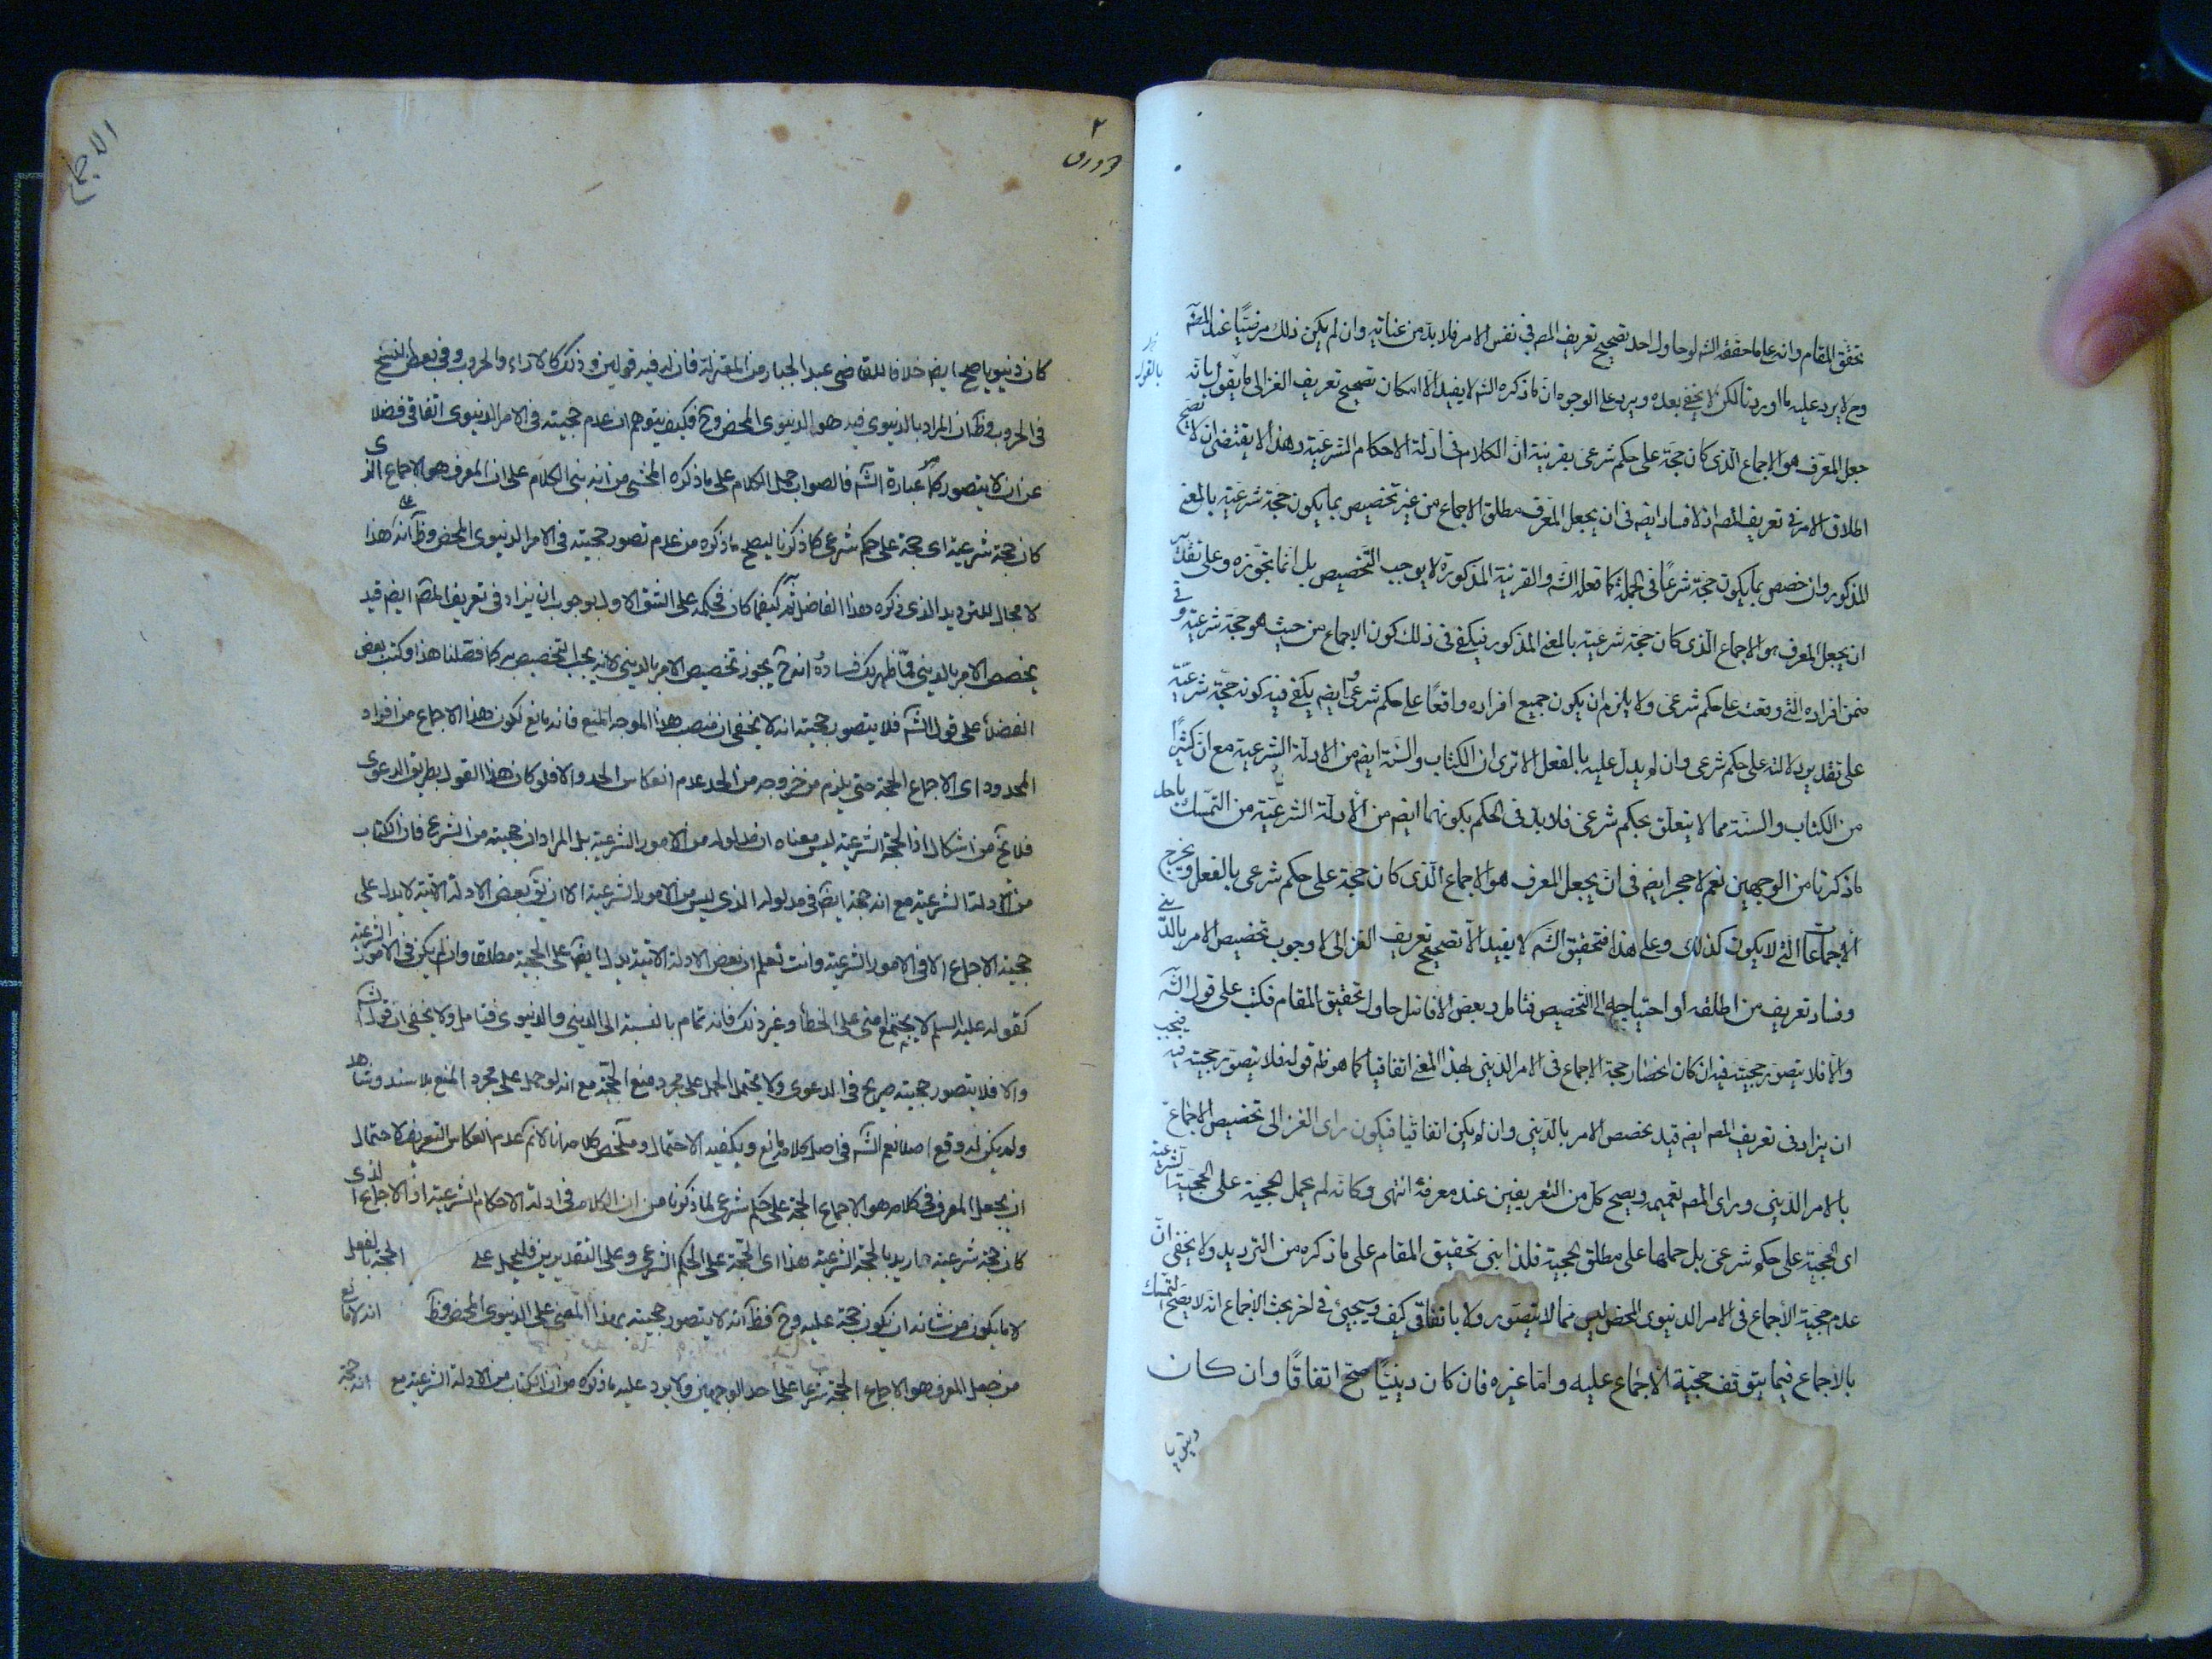 تحقق المقام وانه على ما حققه الشه لو حاول احد تصحيح تعريف المصه في نفس الامر فلا بد من عنايته وان لم يكن ذلك مرضيًا عند المصه
وح لا يرد عليه ما اوردنا لكن لا يخفى بعده ويرد على الوجوه ان ما ذكره الشه لا يفيد الا امكان تصحيح تعريف الغزالى بانه
جعل المعرّف هو الاجماع الّذى كان حجة على حكم شرعى بقرينة انّ الكلام فى ادلة الاحكام الشرعيّة وهذا لا يقتضى ان لا يصح
اطلاق الامر فى تعريف المصه اذ لا فساد ايضه فى ان يجعل المعرّف مطلق الاجماع من غير تخصيص بما يكون حجّة شرعيّة بالمعنى
المذكور وان خصص بما يكون حجّة شرعًا فى الجملة كما فعله الشّه والقرينة المذكورة لا يوجب التّخصيص بل انّما تجوّزه وعلى تقدير
ان يجعل المعرف هو الاجماع الّذى كان حجّة شرعيّة بالمعنى المذكور فيكفى فى ذلك كون الاجماع من حيث هو حجّة شرعيّة فى
ضمن افراده الّتى وقعت على حكم شرعى ولا يلزم ان يكون جميع افراده واقعًا على حكم شرعىّ ايضه يكفى فيه كونه حجّة شرعيّة
على تقدير دلالته على حكم شرعى وان لم يدلّ عليه بالفعل الا ترى ان الكتاب والسّنة ايضه من الادلّة الشرعية مع انّ كثيرًا
من الكتاب والسنّة مما لا يتعلّق بحكم شرعى فلا بدّ فى الحكم بكونهما ايضه من الأدلّة الشرعيّة من التمسّك باحد
ما ذكرنا من الوجهين نعم لا حجر ايضه فى انّ يجعل المعرف هو الاجماع الّذى كان حجة على حكم شرعى بالفعل ويخرج
الاجماعات الّتى لا يكون كذلك وعلى هذا فتحقيق الشّه لا يفيد الا تصحيح تعريف الغزالى لا وجوب تخصيص الامر بالدّينى
وفساد تعريف من اطلقه او احتياجه الى التخصيص فتامل وبعض الافاضل حاول تحقيق المقام فكتب على قول الشّه
والّا فلا يتصوّر حجيّته فيه ان كان اختصار حجية الاجماع فى الامر الدّينى بهذا المعنى اتفاقيا كما هو ظه قوله فلا يتصوّر حجيته فيه فيجب
ان يزاد فى تعريف المصه ايضه قيد يخصص الامر بالدّينى وان لم يكن اتفاقيا فيكون راى الغزالى تخصيص الاجماع
بالامر الدّينى وراى المصه تعميمه ويصح كلّ من التعريفين عند معرفه انتهى وكانّه لم يحمل الحجيّة على الحجّيّة الشرعيّة
اى الحجيّة على حكم شرعى بل حملها على مطلق الحجية فلذا بنى تحقيق المقام على ما ذكره من الترديد ولا يخفى انّ
عدم حجيّة الاجماع فى الامر الدنيوى المحض ليس ممّا لا يتصوّر ولا باتفاقى كيف وسيجيئ فى اخر بحث الاجماع انّه لا يصحّ التمسّك
بالاجماع فيما يتوقف حجيّة الاجماع عليه وامّا غيره فان كان دينيًا صحّ اتفاقًا وان كان
الاجماع
كان دنيويا صح ايضه خلافا للقاضى عبد الجبار من المعتزلة فان له فيه قولين وذلك كالاراء والحروب وفى بعض النسخ
فى الحروب وظه ان المراد بالدنيوى فيه هو الدنيوى المحض وح فكيف يتوهم ان عدم حجيته فى الامر الدنيوى اتفاقى فضلا
عن ان لا يتصور كما مر عبارة الشّه فالصواب حمل الكلام على ما ذكره المحشى من انه بنى الكلام على ان المعرف هو الاجماع الذى
كان حجة شرعية اى حجة على حكم شرعى كما ذكرنا ليصح ما ذكره من عدم تصور حجيته فى الامر الدنيوى المحض وظ انه على هذا
لا مجال للترديد الذى ذكره هذا الفاضل ثم كيفما كان فحكمه على الشق الاول بوجوب ان يزاد فى تعريف المصه ايضه قيد
يخصص الامر بالدينى ممّا ظهر لك فساده انه ح يجوز تخصيص الامر بالدينى لا انه يجب التخصيص به كما فصلنا هذا وكتب بعض
الفضلاء على قول الشّه فلا يتصور حجيته انه لا يخفى ان منصب هذا الموجه المنع فانه مانع لكون هذا الاجماع من افراد
المحدود اى الاجماع الحجة حتى يلزم من خروجه من الحد عدم انعكاس الحد والا فلو كان هذا القول بطريق الدعوى
فلا يخ من اشكال اذ الحجة الشرعية ليس معناه ان مدلوله من الامور الشرعية بل المراد ان حجيته من الشرع فان الكتاب
من الادلة الشرعية مع انه حجة ايضه فى مدلوله الذى ليس من الامور الشرعية الا ان يق بعض الادلة الاتية لا يدل على
حجية الاجماع الا فى الامور الشرعية وانت تعلم ان بعض الادلة الاتية يدل ايضه على الحجية مطلقا وان لم يكن فى الامور الشرعية
كقوله عليه السلم لا يجتمع امتى على الخطأ وغير ذلك فانه تمام بالنسبة الى الدينى والدنيوى فتامل ولا يخفى ان قول الشه
والا فلا يتصور حجيته صريح فى الدعوى ولا يحتمل الحمل على مجرد منع الحجّية مع انه لو حمل على مجرد المنع بلا سند وشاهد
ولم يكن له وقع اصلا نعم الشّه فى اصل كلامه مانع ويكفيه الاحتمال وملخص كلامه انا لا نم عدم انعكاس التعريف لاحتمال
ان يجعل المعرف فى كلامه هو الاجماع الحجة على حكم شرعى لما ذكرنا من ان الكلام فى ادلة الاحكام الشرعية او الاجماع الذى
كان حجة شرعية واريد بالحجة الشرعية هذا اى الحجّة على الحكم الشرعى وعلى التقديرين فليحمل على الحجة بالفعل
لا ما يكون من شانه ان يكون حجة عليه وح فظ انه لا يتصور حجيته بهذا المعنى على الدنيوى المحض وظ انه لا مانع
من جعل المعرف هو الاجماع الحجة شرعا على احد الوجهين ولا يرد عليه ما ذكره من ان الكتاب من الادلة الشرعية مع انه حجة